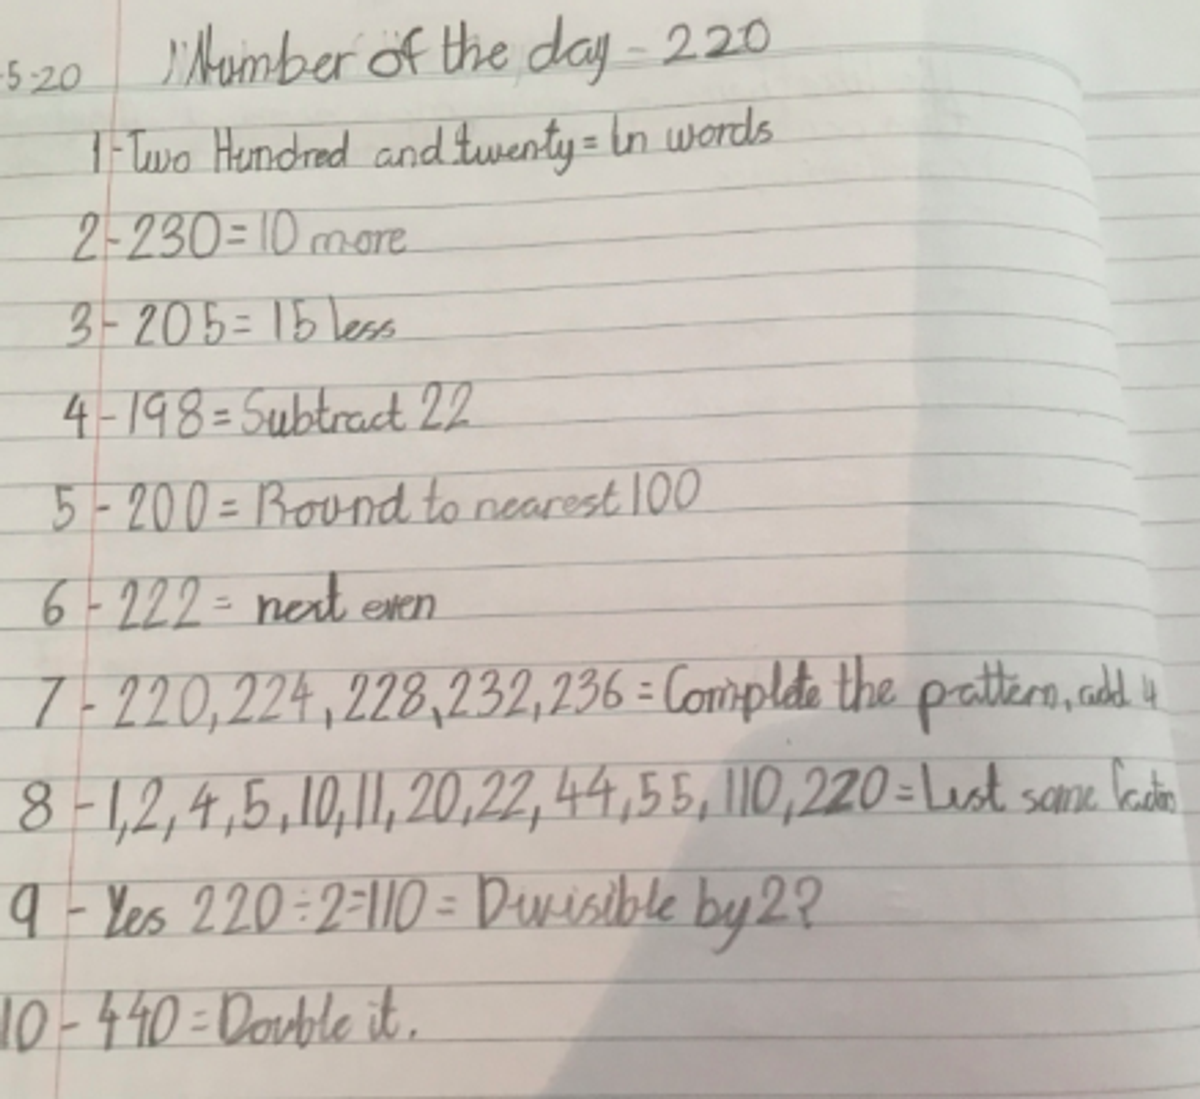 Number of the day - 220
5-20
1-Two Hundred and twenty = In words
2-230=10 more
3-205= 15 less
4-198=Subtract 22
5-200=Round to nearest 100
6-222= next even
7-220,224,228,232,236=Complete the pattern, add 4
8-1,2,4,5,10,11,20,22,44,55,110,220=List some factors
9-Yes 220÷2=110= Divisible by 2?
10-440=Double it.